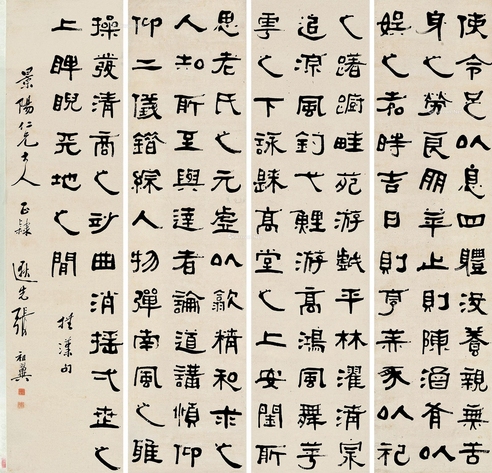 使令足以息四體役養親無苦
身之勞良朋萃止則陳酒肴以
娛之嘉時吉日則亨羔豕以祀
之躇躕畦苑游戲平林濯清泉
追涼風釣弋鯉游高鴻風舞乎
雩之下詠歸高堂之上安閨所
思老氏之元虛以歙精和求之
人如所至與達者論道講 仰
仰二儀錯綜人物彈南風之雅
操發清商之妙曲消搖弌世之
上睥睨天地之間
景陽仁兄大人正隸 遜先張祖翼